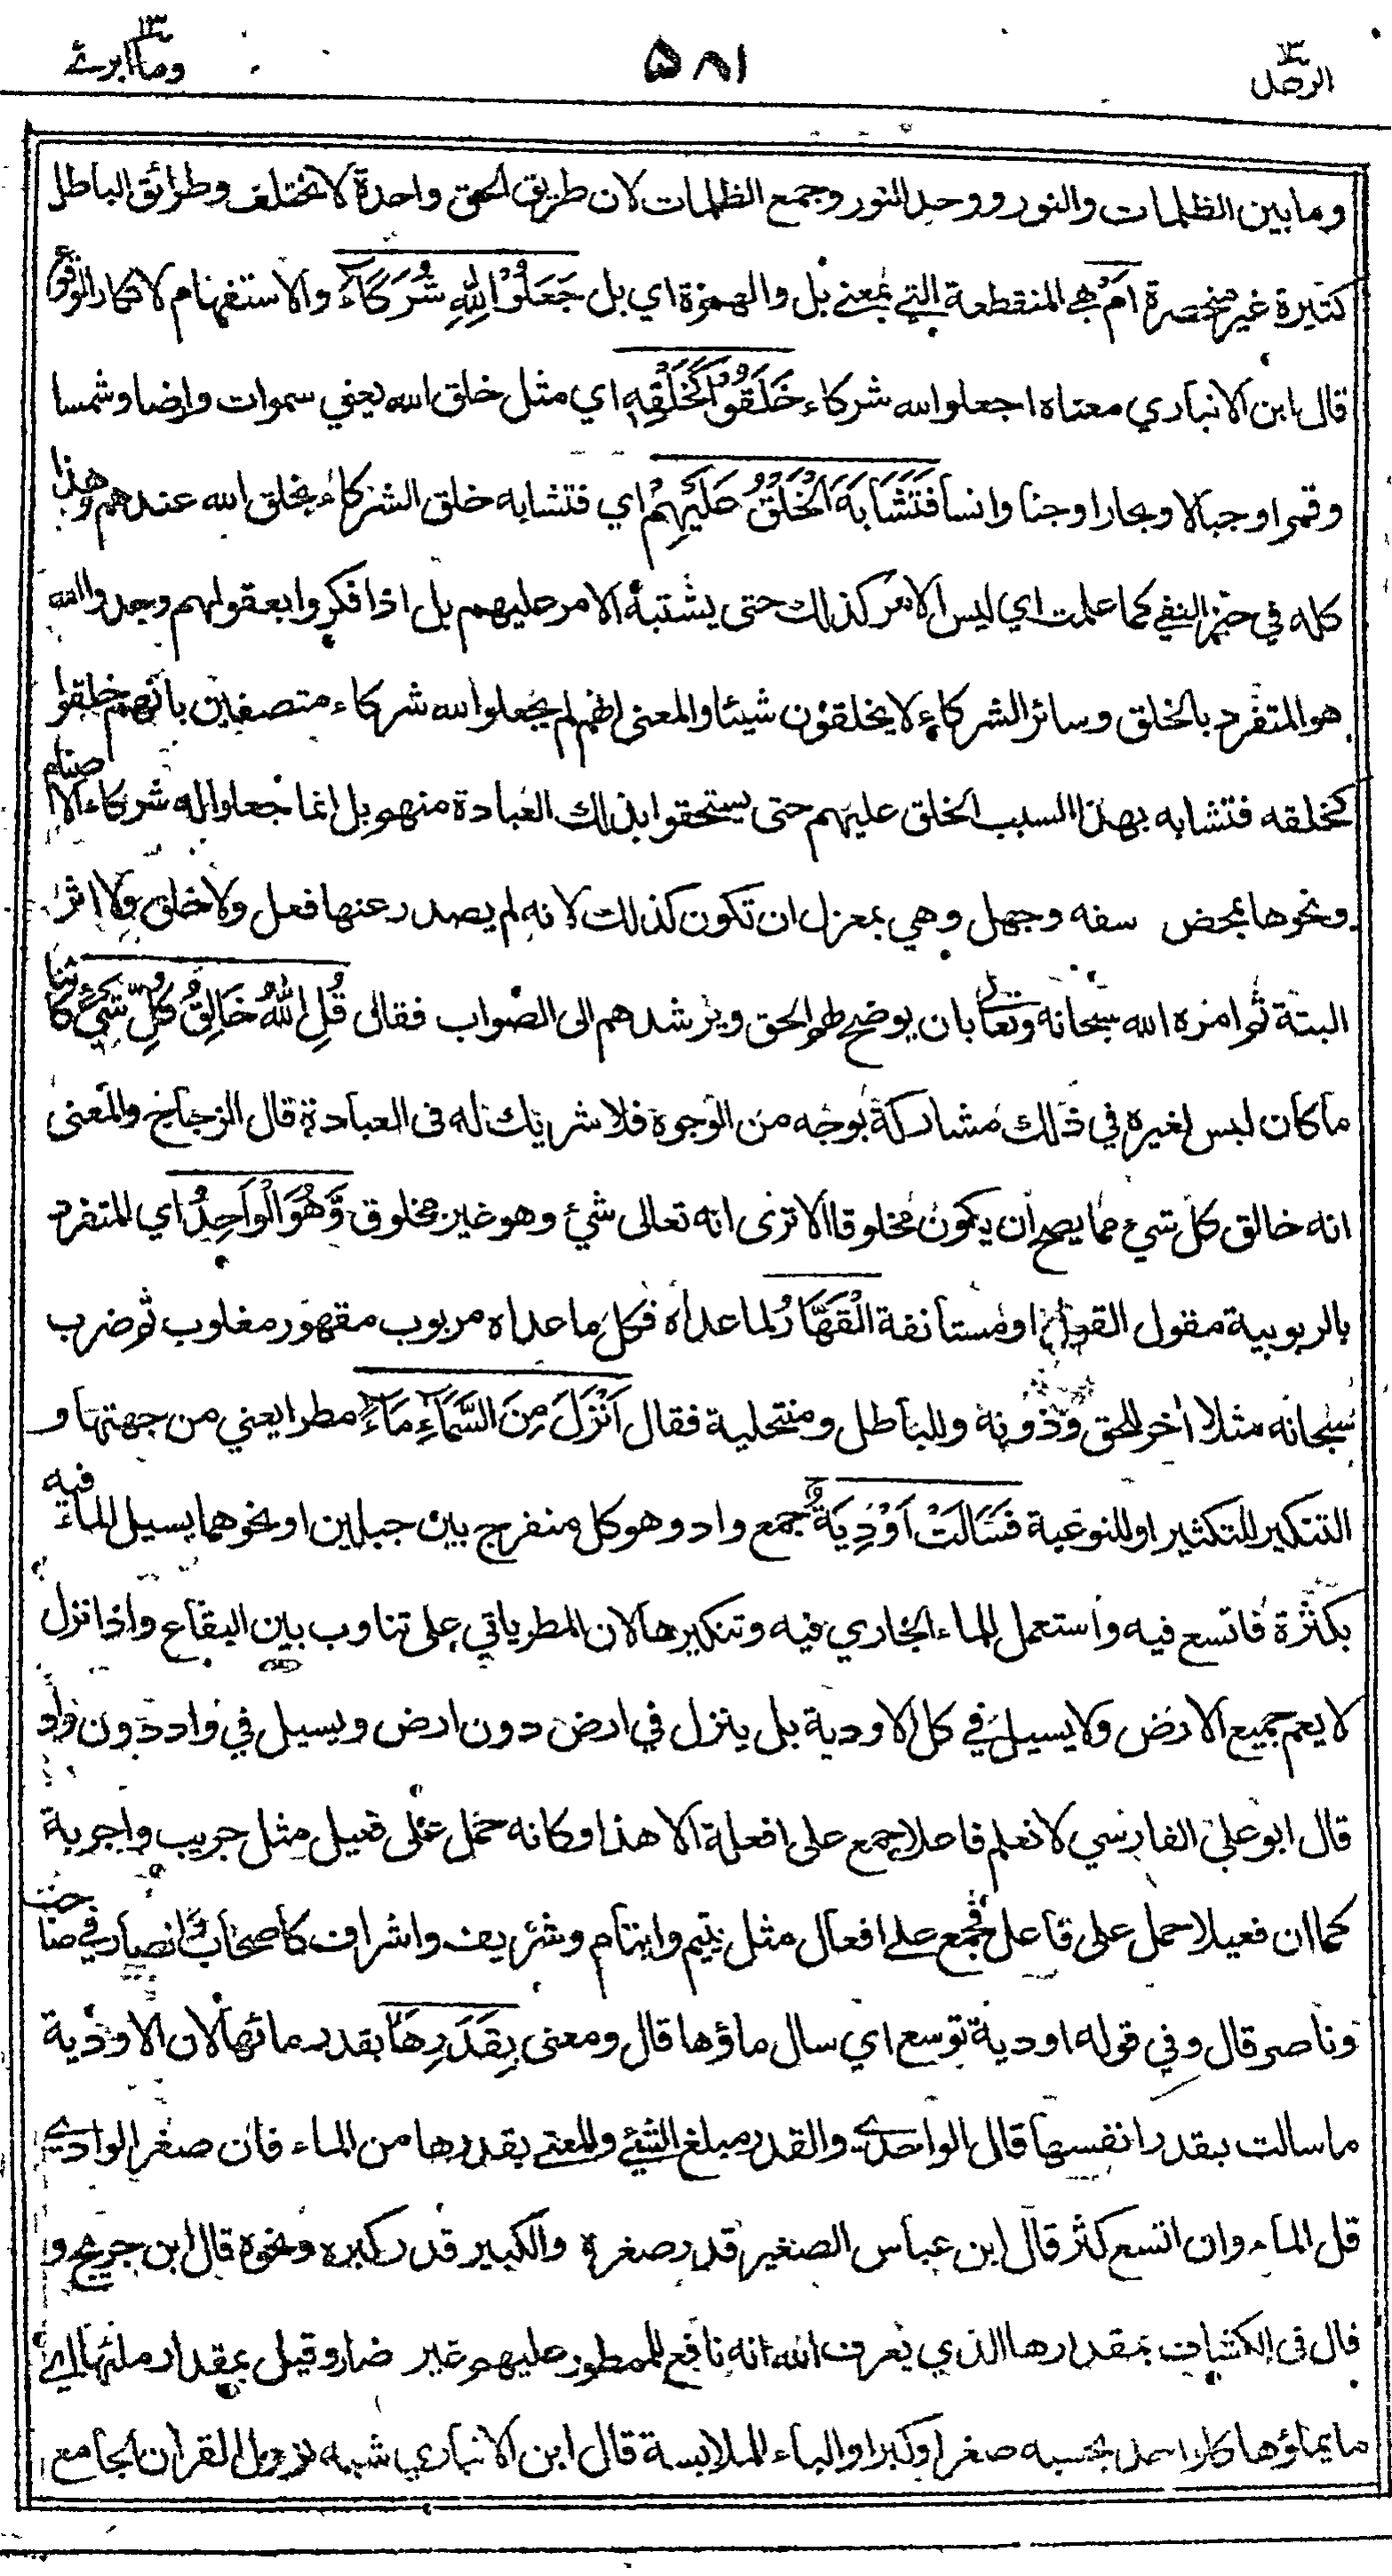 الرعد ١٣
٥٨١
وما ابرئ ١٣
وما بين الظلمات والنور ووحد النور وجمع الظلمات لان طريق الحق واحدة لا تختلف وطرائق الباطل
كثيرة غير منحصرة اَمْ هي المنقطعة التي بمعنى بل والهمزة اي بل جَعَلُوْا لِلّٰهِ شُرَكَآءَ والاستفهام لانكار الوقوع
قال ابن الانباري معناه اجعلوا لله شركاء خَلَقُوْا كَخَلْقِهٖ اي مثل خلق الله يعني سموات وارضا وشمسا
وقمرا وجبالا وبحارا وجنا وانسا فَتَشَابَهَ الْخَلْقُ عَلَيْهِمْ اي فتشابه خلق الشركاء بخلق الله عندهم وهذا
كله في حيز النفي كما علمت اي ليس الامر كذلك حتى يشتبه الامر عليهم بل اذا فكروا بعقولهم وجدوا الله
هو المتفرد بالخلق وسائر الشركاء لا يخلقون شيئا والمعنى انهم لم يجعلوا لله شركاء متصفين بانهم خلقوا
كخلقه فتشابه بهذا السبب الخلق عليهم حتى يستحقوا بذلك العبادة منهم بل انما جعلوا له شركاء الاصنام
ونحوها بمحض سفه وجهل وهي بمعزل ان تكون كذلك لانه لم يصدر عنها فعل ولا خلق ولا اثر
البتة ثم امره الله سبحانه وتعالى بان يوضح لهم الحق ويرشدهم الى الصواب فقال قُلِ اللّٰهُ خَالِقُ كُلِّ شَيْءٍ كائنا
ما كان ليس لغيره في ذلك مشاركة بوجه من الوجوه فلا شريك له فى العبادة قال الزجاج والمعنى
انه خالق كل شيء مما يصح ان يكون مخلوقا الا ترى انه تعالى شيء وهو غير مخلوق وَّهُوَ الْوَاحِدُ اي المتفرد
بالربوبية مقول القول او مستأنفة الْقَهَّارُ لما عداه فكل ما عداه مربوب مقهور مغلوب ثم ضرب
سبحانه مثلا اخر للحق وذويه وللباطل ومنتحليه فقال اَنْزَلَ مِنَ السَّمَآءِ مَآءً مطرا يعني من جهتها و
التنكير للتكثير او للنوعية فَسَالَتْ اَوْدِيَةٌ جمع واد وهو كل منفرج بين جبلين او نحوهما يسيل الماء فيه
بكثرة فاتسع فيه واستعمل للماء الجاري فيه وتنكيرها لان المطر ياتي على تناوب بين البقاع واذا نزل
لا يعم جميع الارض ولا يسيل في كل الاودية بل ينزل في ارض دون ارض ويسيل في واد دون واد
قال ابو علي الفارسي لا نعلم فاعلا جمع على افعلة الا هذا وكانه حمل على فعيل مثل جريب واجربة
كما ان فعيلا حمل على فاعل فجمع على افعال مثل يتيم وايتام وشريف واشراف كاصحاب وانصار في صاحب
وناصر قال وفي قوله اودية توسع اي سال ماؤها قال ومعنى بِقَدَرِهَا بقدر مائها لان الاودية
ما سالت بقدر انفسها قال الواحدي والقدر مبلغ الشيء والمعنى بقدرها من الماء فان صغر الوادي
قل الماء وان اتسع كثر قال ابن عباس الصغير قدر صغره والكبير قدر كبره ونحوه قال ابن جريج و
قال فى الكشاف بمقدارها الذي يعرف الله انه نافع للممطور عليهم غير ضار وقيل بمقدار ملئها اي
ما يملؤها كل واحد بحسبه صغرا وكبرا والباء للملابسة قال ابن الانباري شبه نزول القران الجامع